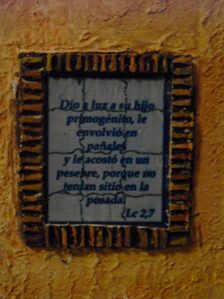 Dio a luz a su hijo
primogénito, le
envolvió en
pañales
y le acostó en un
pesebre, porque no
tenían sitio en la
posada.
Lc 2,7